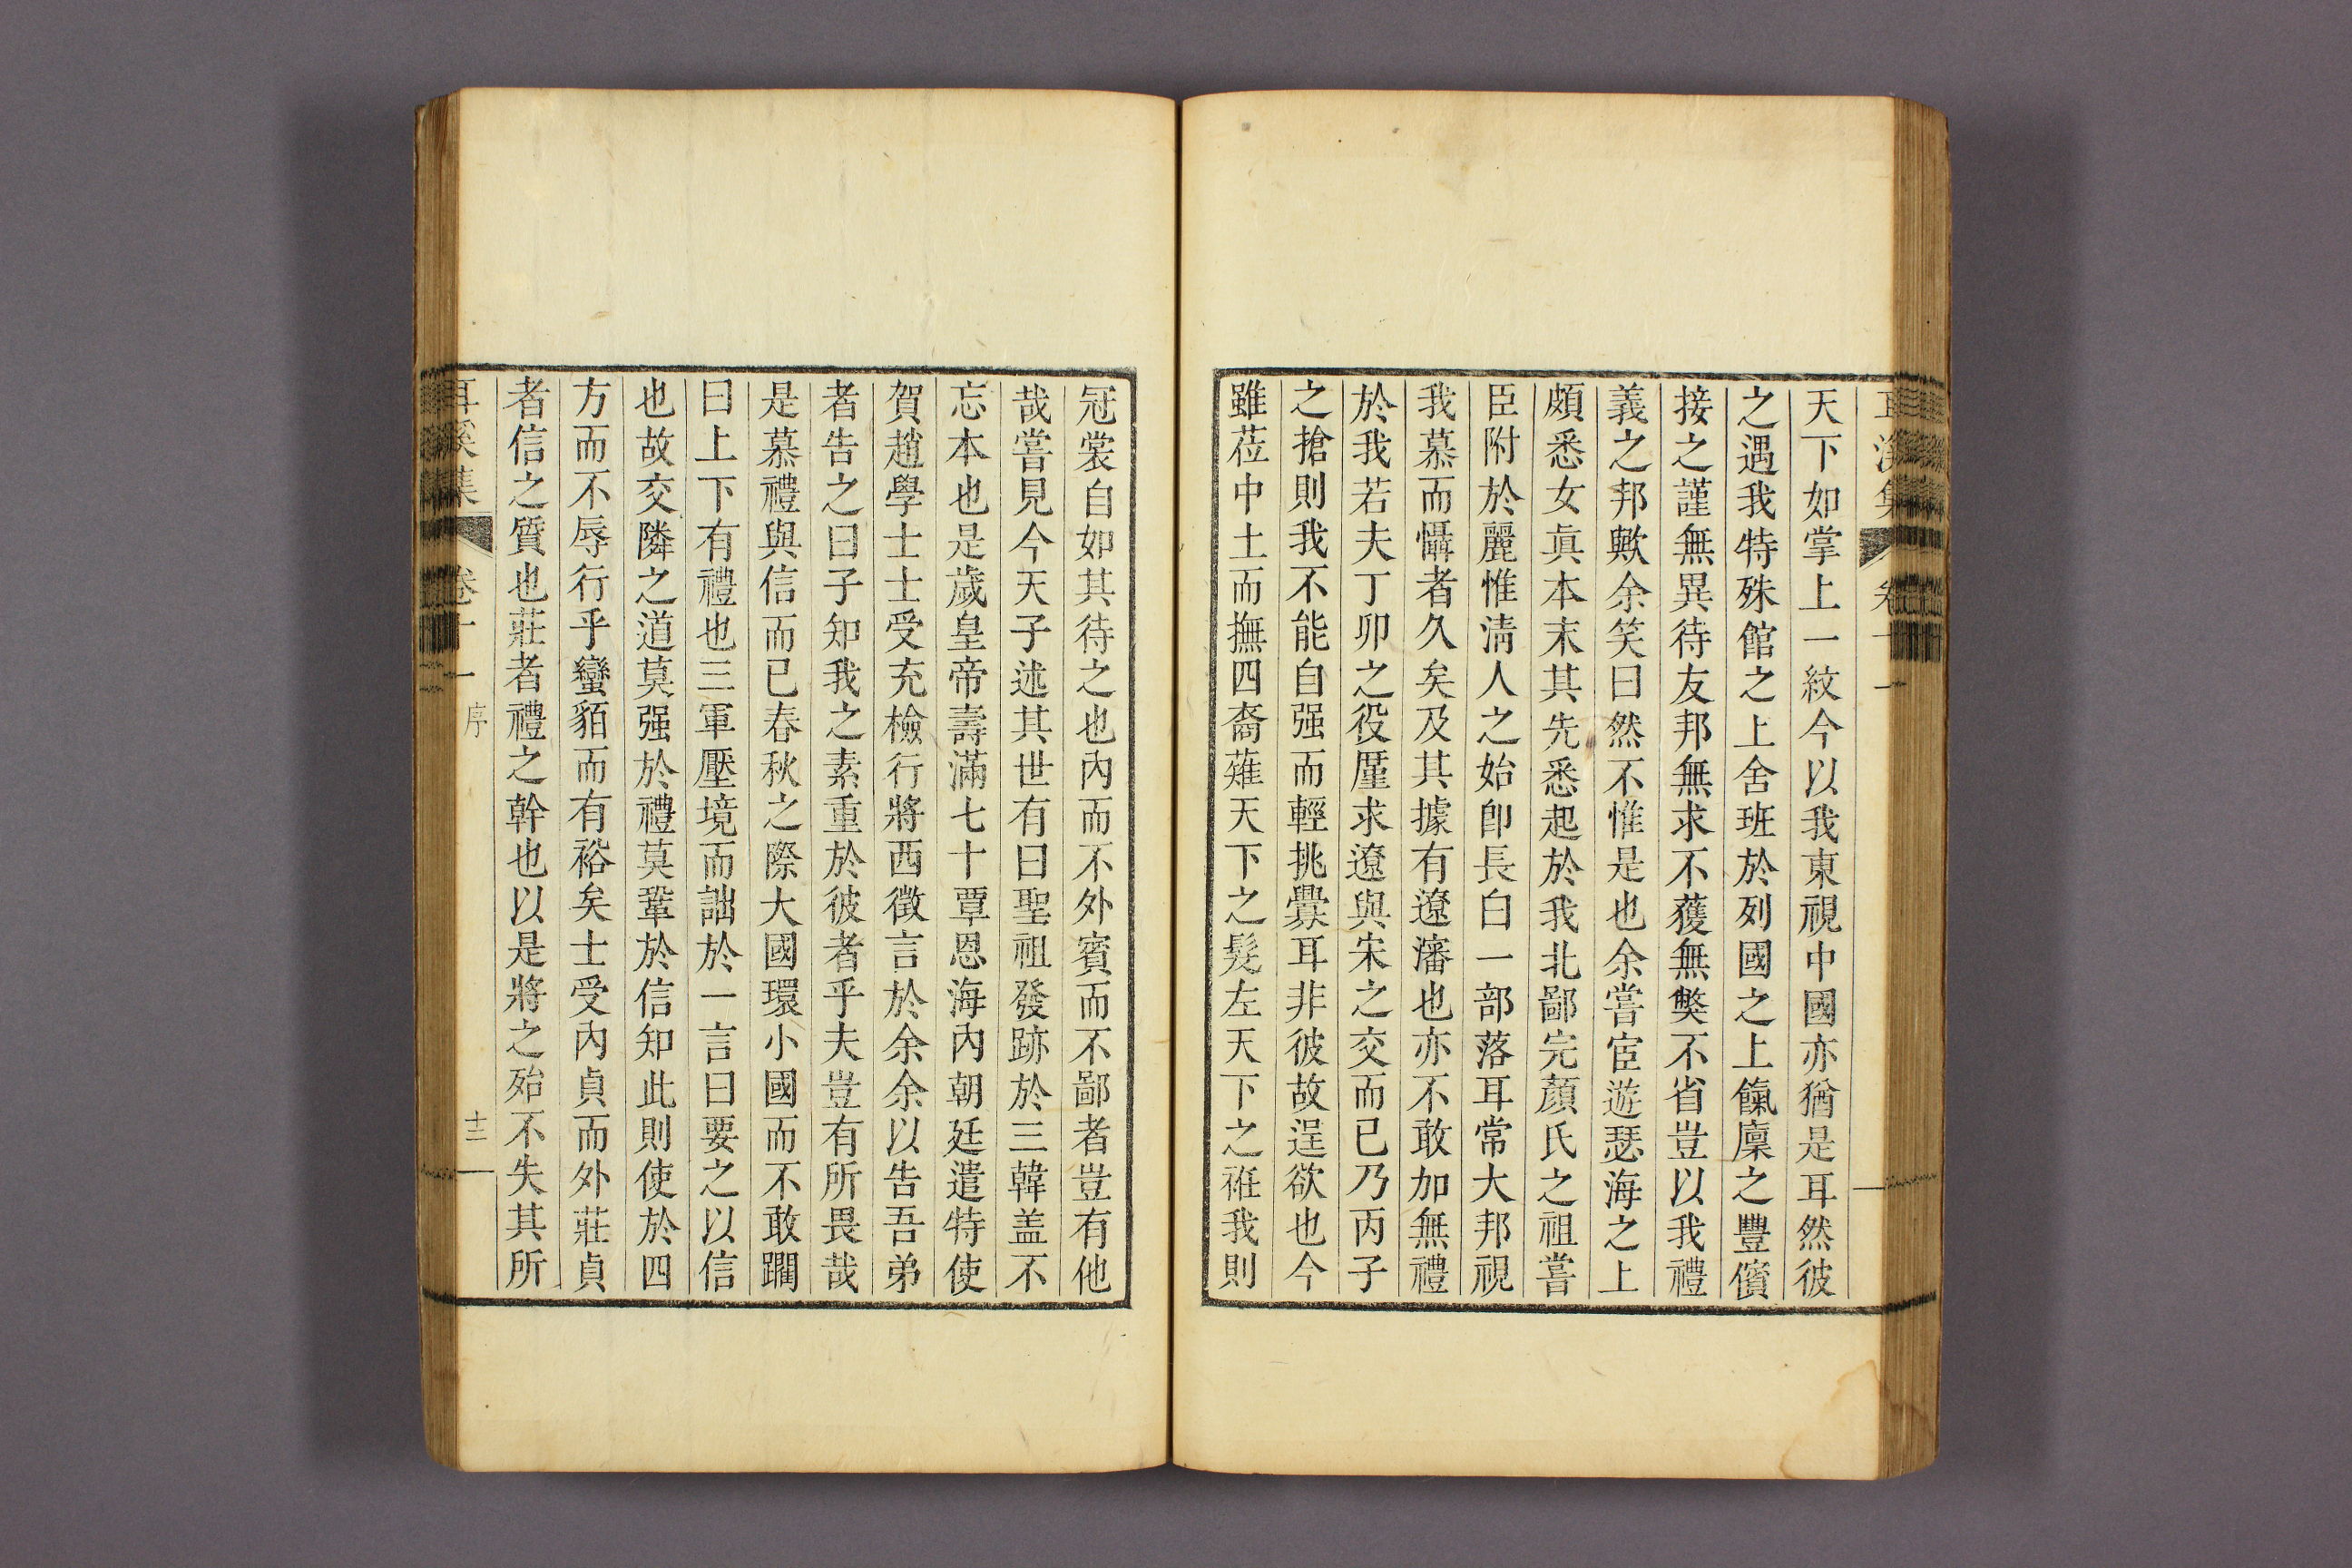 天下如掌上一紋今以我東視中國亦猶是耳然彼
之遇我特殊館之上舍班於列國之上餼廩之豐儐
接之謹無異待友邦無求不獲無獘不省豈以我禮
義之邦歟余笑曰然不惟是也余嘗宦遊瑟海之上
頗悉女眞本末其先悉起於我北鄙完顏氏之祖嘗
臣附於麗惟淸人之始卽長白一部落耳常大邦視
我慕而懾者久矣及其據有遼瀋也亦不敢加無禮
於我若夫丁卯之役厪求遼與宋之交而已乃丙子
之搶則我不能自强而輕挑釁耳非彼故逞欲也今
雖莅中土而撫四裔薙天下之髮左天下之袵我則
冠裳自如其待之也內而不外賓而不鄙者豈有他
哉嘗見今天子述其世有曰聖祖發跡於三韓盖不
忘本也是歲皇帝壽滿七十覃恩海內朝廷遣特使
賀趙學士士受充檢行將西徵言於余余以告吾弟
者告之曰子知我之素重於彼者乎夫豈有所畏哉
是慕禮與信而已春秋之際大國環小國而不敢躙
曰上下有禮也三軍壓境而詘於一言曰要之以信
也故交隣之道莫强於禮莫鞏於信知此則使於四
方而不辱行乎蠻貊而有裕矣士受內貞而外莊貞
者信之質也莊者禮之幹也以是將之殆不失其所
耳溪集 卷十一 序 十三